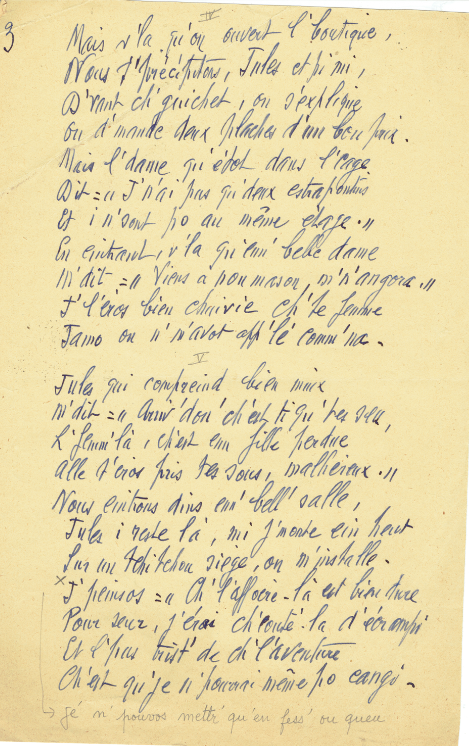 3
IV
Mais v'la qu'on ouvert l'boutique,
Nous s'précipitons, Jules et pi mi,
D'vant ch'guichet, on s'explique
On d'mande deux plaches d'un bon prix.
Mais l'dame qu'étot dans l'cage
Dit = « J'n'ai pas qu'deux estrapontins
Et i n'sont po au même étage. »
En eintrant, v'la qu'enn' belle dame
M'dit = « Viens a non mason, m'n'angora. »
J'l'éros bien chuivie ch'te femme
Jamo on n'm'avot app'lé comm'na.
V
Jules qui comprend bien miux
M'dit = « Arriv' don' ch'est ti qu't'es seu,
L'femm'là, ch'est enn fille perdue
Alle t'éros pris tes sous, malhéreux. »
Nous eintrons dins enn' bell' salle,
Jules i reste là, mi j'monte ein heut
Sur un tchitchou siège, on m'installe.
x J'peinsos = « Ch'l'affoire-là est bien dure
Pour seur, j'érai ch'couté-là d'écrampi
Et l'pas trist' de ch'l'aventure.
Ch'est qu'je n'pourrai même po cangi.
Jé n'pouvos mettr' qu'en fess' ou queu